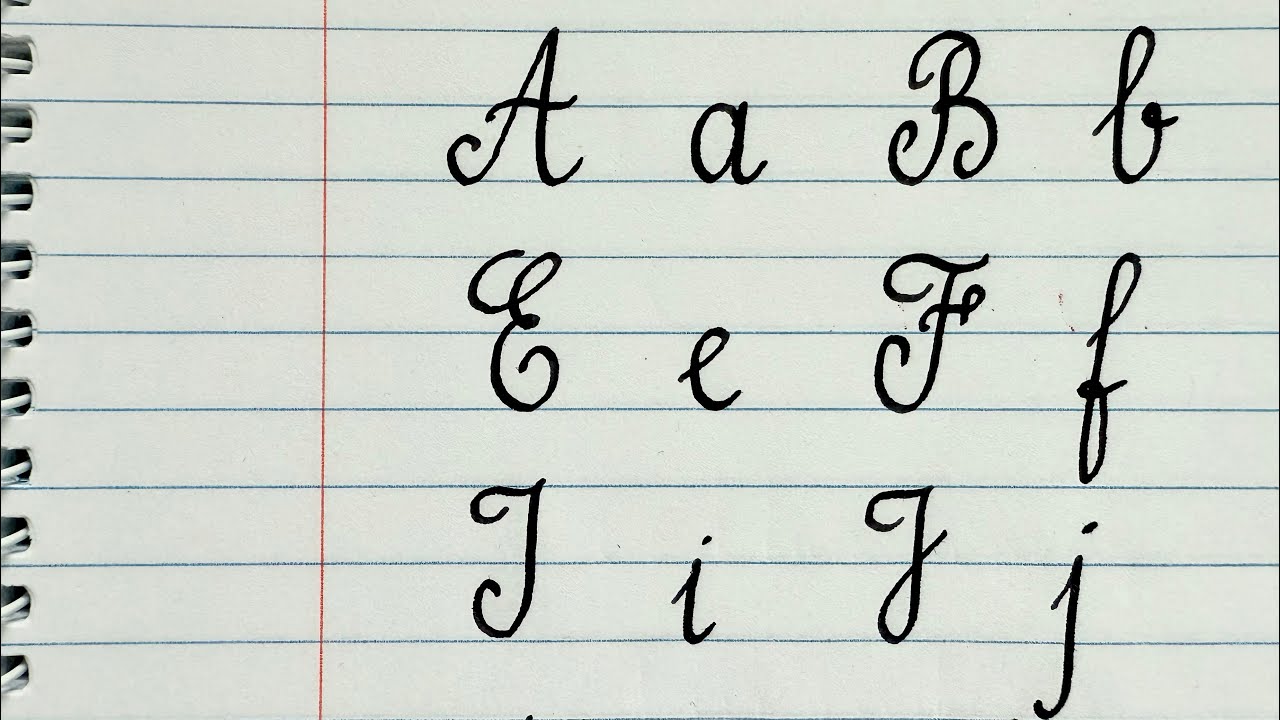 A a B b
E e F f
I i J j